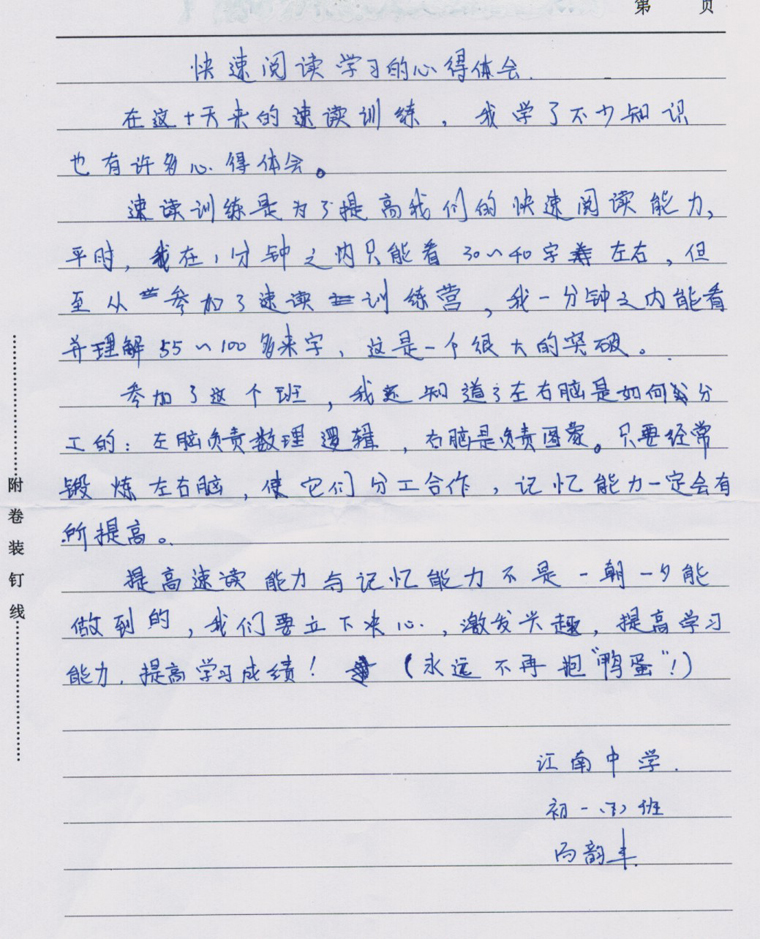 第 页
快速阅读学习的心得体会.
在这十天来的速读训练，我学了不少知识
也有许多心得体会。
速读训练是为了提高我们的快速阅读能力,
平时，我在1分钟之内只能看30~40字左右，但
至从参加了速读训练营，我一分钟之内能看
并理解55~100多来字，这是一个很大的突破。
参加了这个班，我还知道了左右脑是如何分
工的：左脑负责数理逻辑，右脑是负责图象。只要经常
锻炼左右脑，使它们分工合作，记忆能力一定会有
所提高。
提高速读能力与记忆能力不是一朝一夕能
做到的，我们要立下决心，激发兴趣，提高学习
能力，提高学习成绩！（永远不再抱“鸭蛋”！）
江南中学.
初一班
韵丰
附卷装钉线